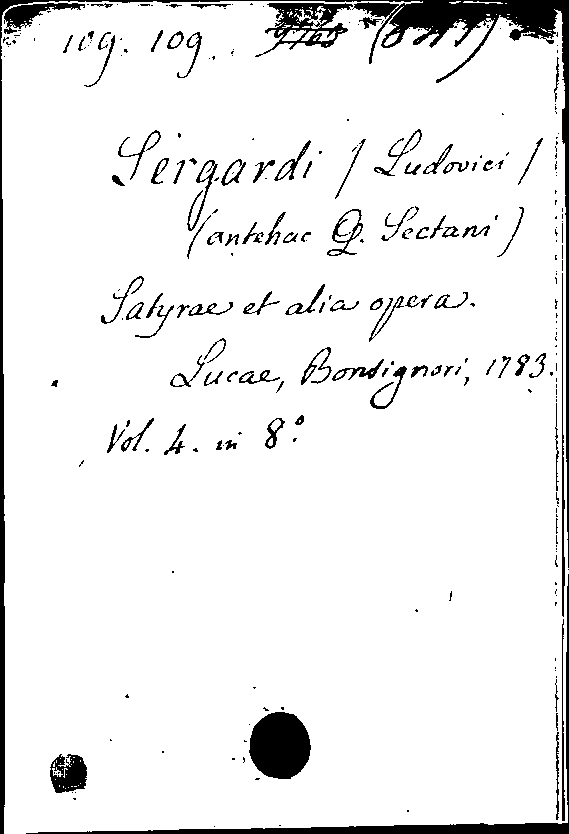 109. 109.
Sergardi / Ludovici /
(antehac Q. Sectani)
Satyrae et alia opera.
Lucae, Bonsignori, 1783.
Vol. 4. in 8.º